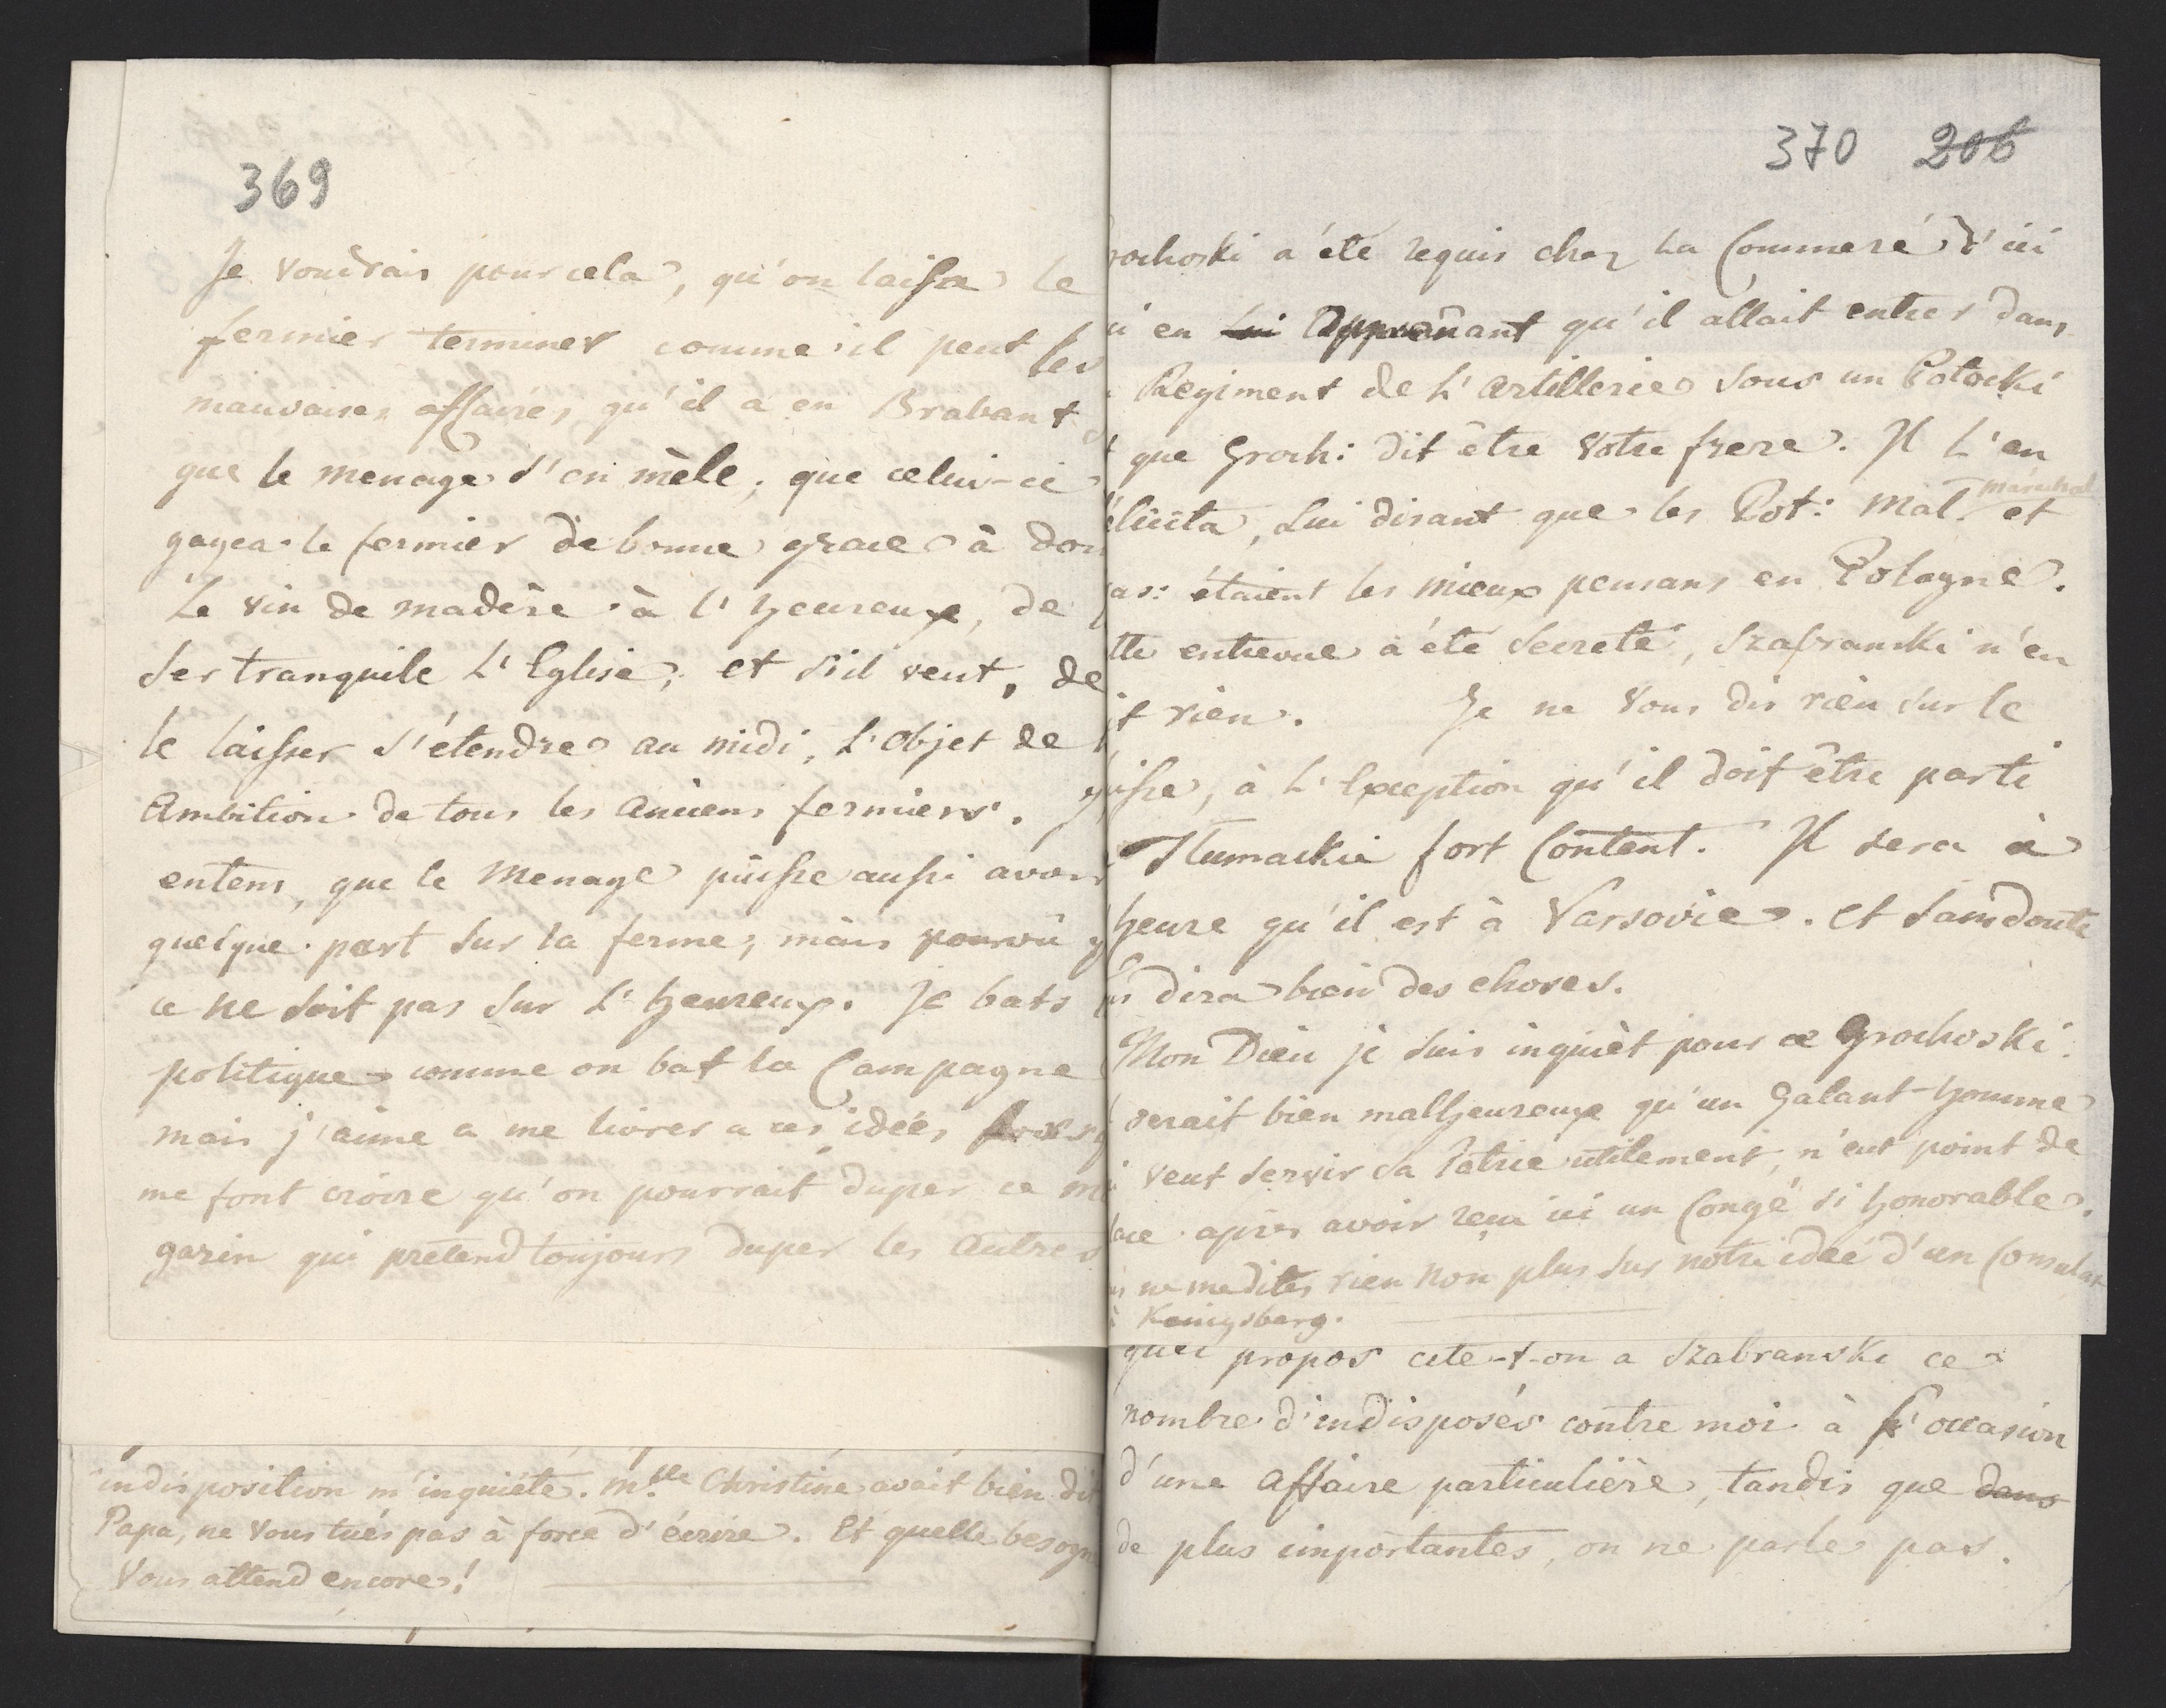 369
Je voudrais pour cela, qu'on laissa le
fermier terminer comme il peut les
mauvaises affaires qu'il a en Brabant
que le menage s'en mèle, que celui-ci
gagea le fermier de bonne grace à don
Le vin de madère à l'heureux, de
ser tranquile L'Eglise, et s'il veut, de
le laisser s'étendre au midi, L'objet de
Ambition de tous les anciens fermiers.
entens, que le menage puisse aussi avoir
quelque part sur la ferme, mais pourvû
ce ne soit pas sur L'heureux. Je bats
politique comme on bat la Campagne
mais j'aime a me livrer a ces idées
me font croire qu'on pourrait duper ce m
gazin qui pretend toujours duper les Autres
indisposition m'inquiéte. Mlle Christine avait bien dit
Papa, ne Vous tués pas à force d'écrire. Et quelle besogn
Vous attend encore!
370 206
rochoski a été requis chez La Commere d'ici
ui en lui apprenant qu'il allait entrer dans
Regiment de L'artillerie sous un Potocki
t que Groch: dit être Votre frere. Il L'en
élicita, Lui disant que les Pot: Mal. et
maréchal
as: étaient les mieux pensans en Pologne.
tte entrevue a été secrete, Szabranski n'en
it rien. Je ne Vous dis rien sur le
uisse, à L'Exception qu'il doit être parti
Tlumackie fort Content. Il sera à
heure qu'il est à Varsovie. et sans doute
us dira bien des choses.
Mon Dieu je suis inquièt pour ce Grochoski.
serait bien malheureux qu'un Galant-homme
i veut servir sa Patrie utilement, n'eut point de
lace après avoir reçu ici un Congé si honorable.
us ne me dites rien non plus sur notre ideé d'un Consulat
à Kœnigsberg.
quel propos cite-t-on a Szabranski ce
nombre d'indisposés contre moi à l'occasion
d'une affaire particulière, tandis que dans
de plus importantes, on ne parle pas.